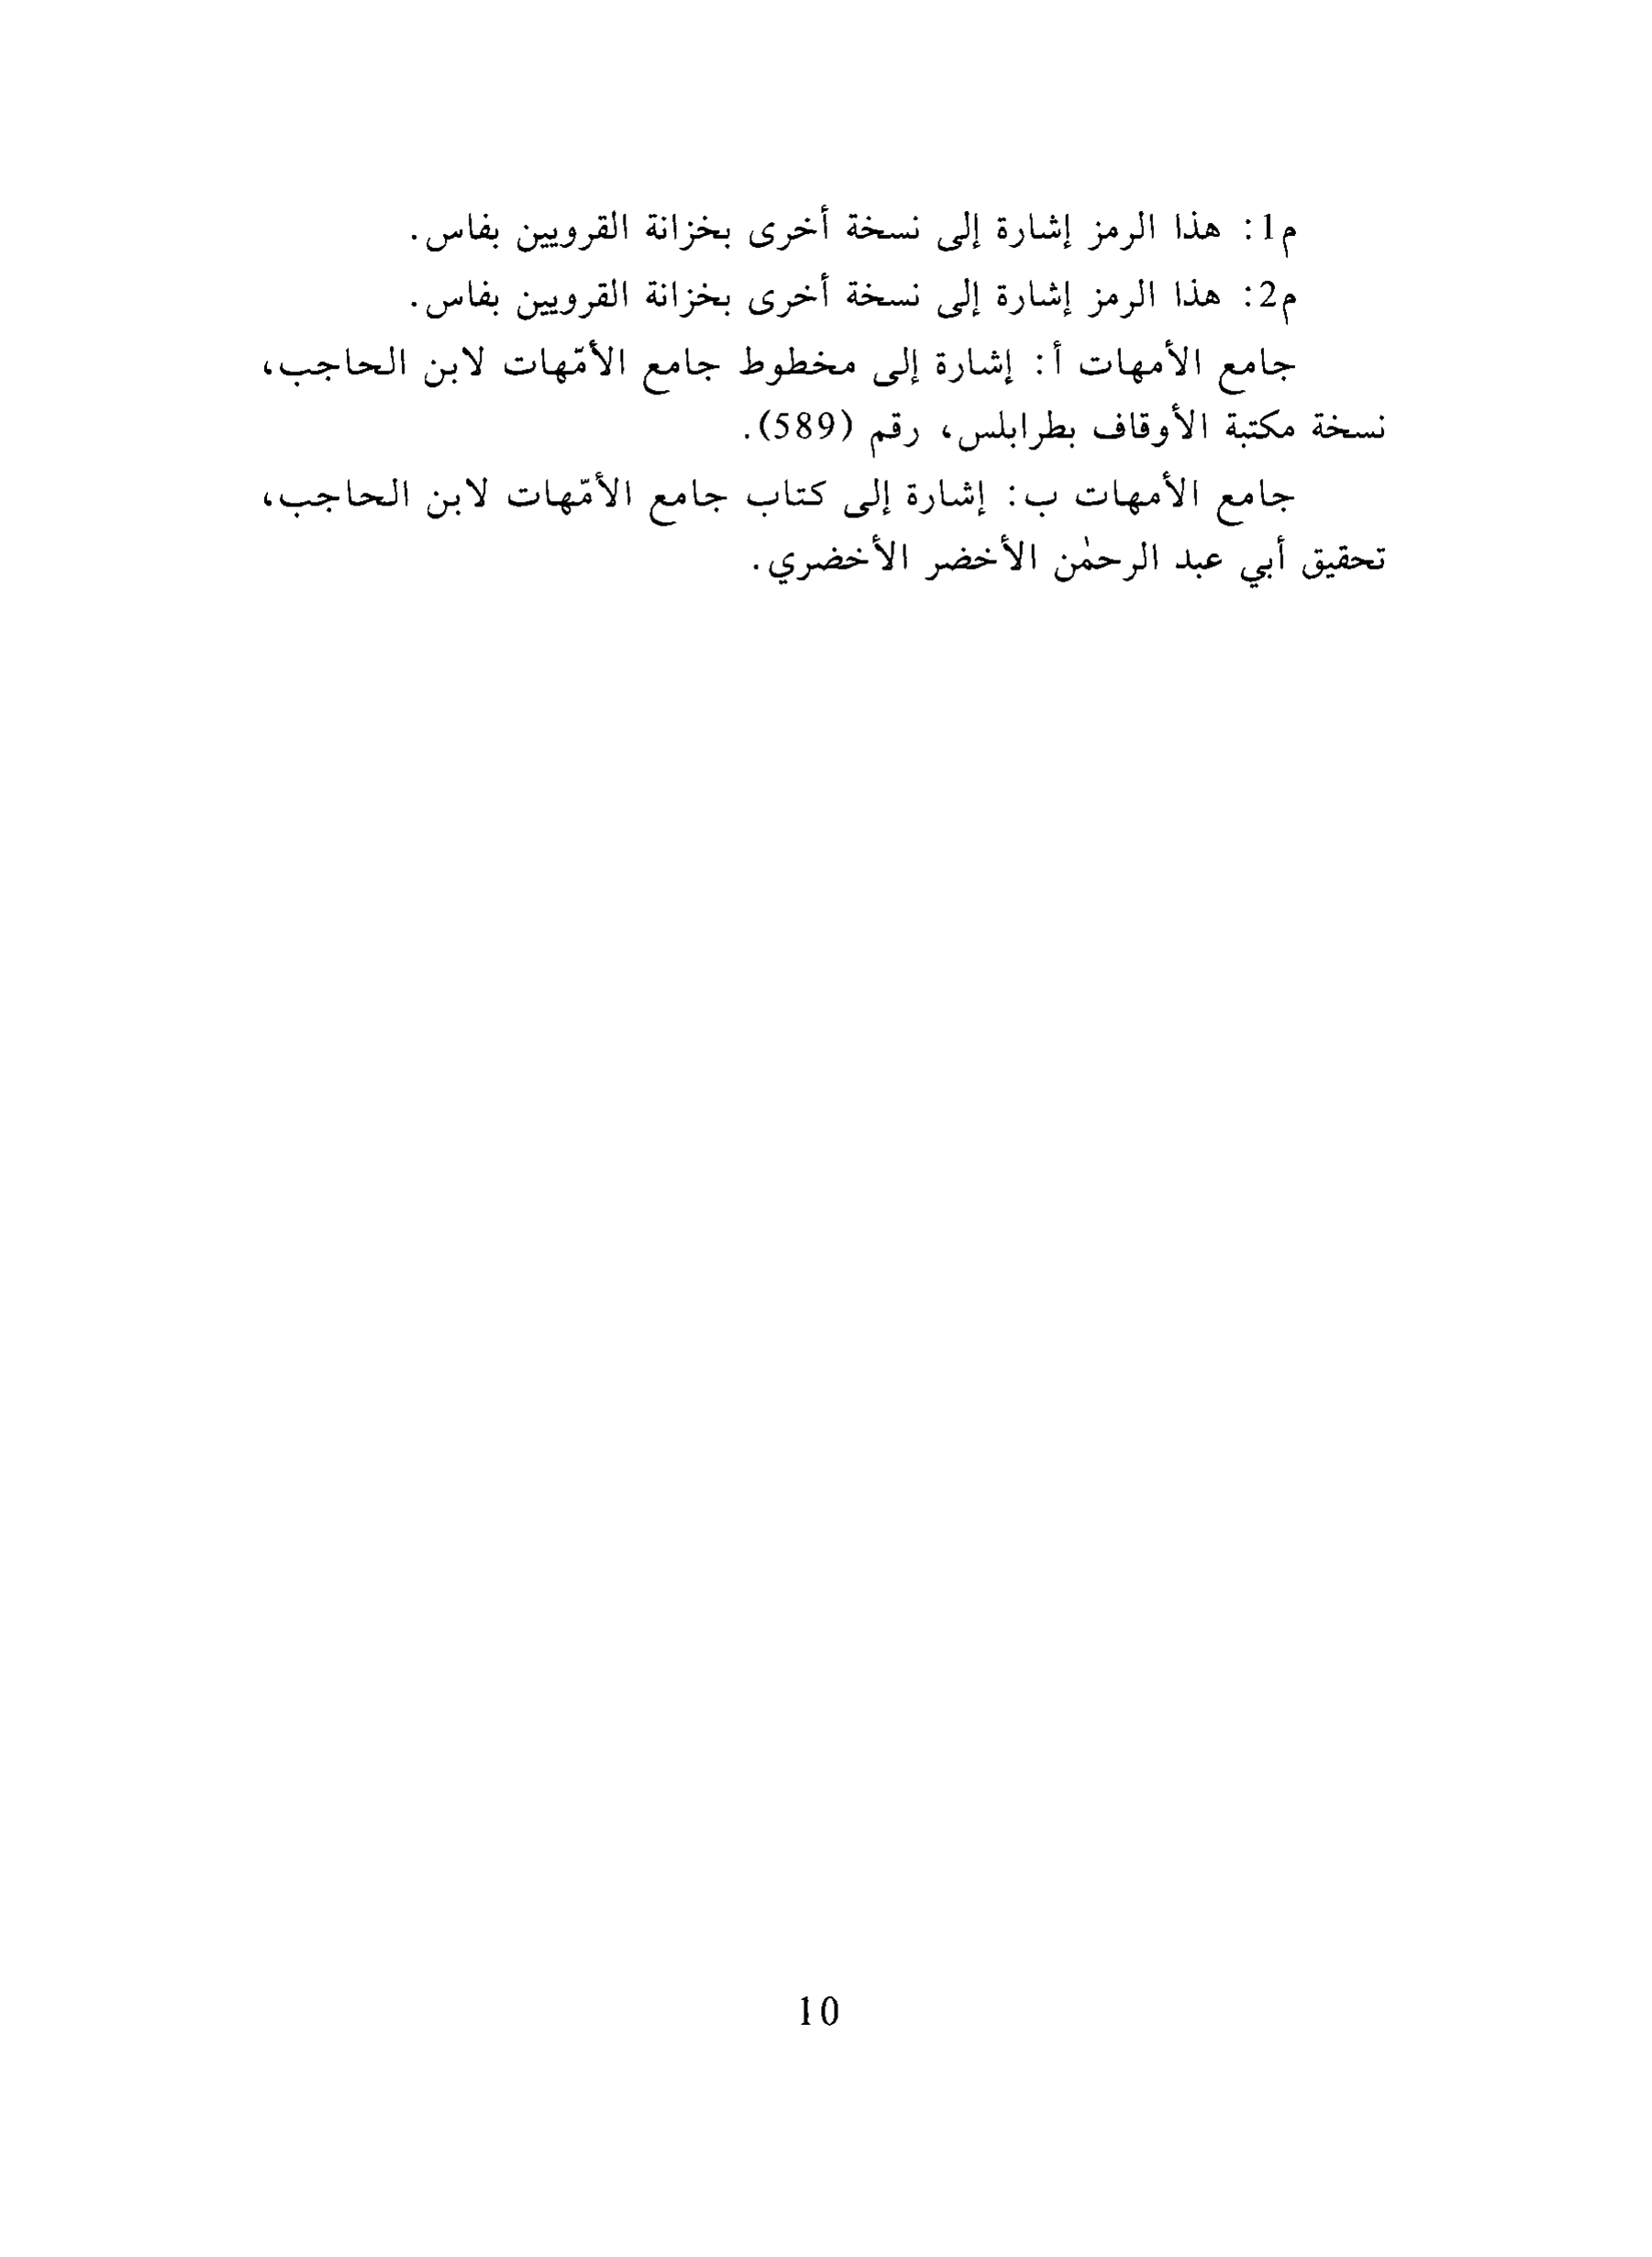 م1: هذا الرمز إشارة إلى نسخة أخرى بخزانة القرويين بفاس.
م2: هذا الرمز إشارة إلى نسخة أخرى بخزانة القرويين بفاس.
جامع الأمهات أ: إشارة إلى مخطوط جامع الأمّهات لابن الحاجب،
نسخة مكتبة الأوقاف بطرابلس، رقم (589).
جامع الأمهات ب: إشارة إلى كتاب جامع الأمّهات لابن الحاجب،
تحقيق أبي عبد الرحمٰن الأخضر الأخضري.
10